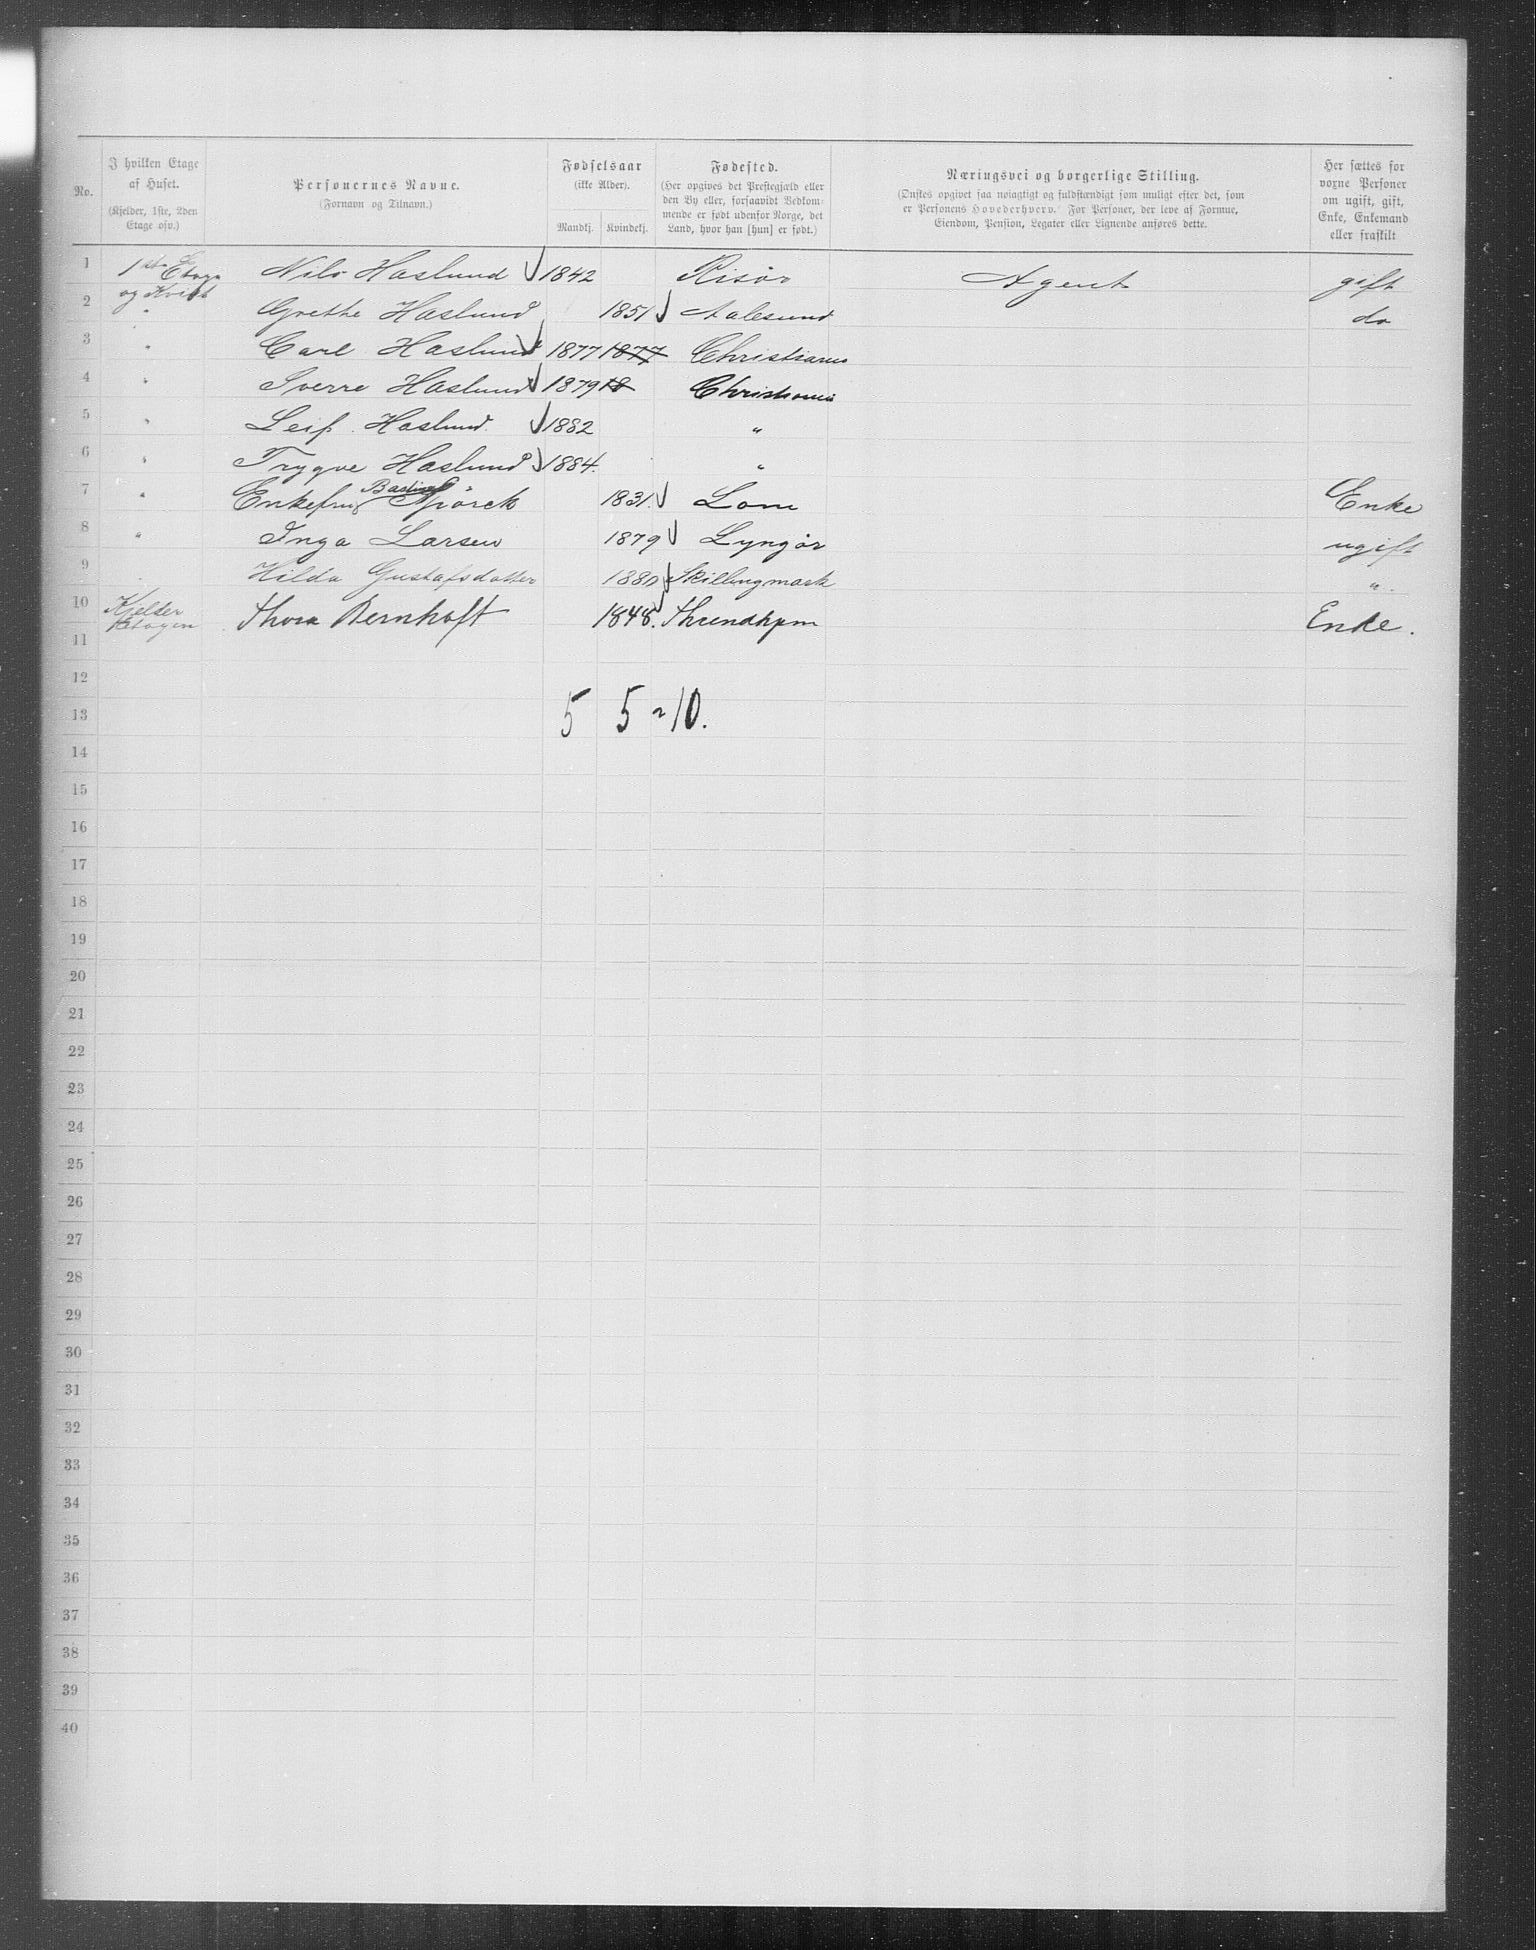 No. | I hvilken Etage af Huset. (Kjelder, 1ste, 2den Etage osv.) | Personernes Navne. (Fornavn og Tilnavn.) | Fødselsaar (ikke Alder). Mandkj. | Kvindekj. | Fødested. (Her opgives det Prestegjæld eller den By eller, forsaavidt Vedkommende er født udenfor Norge, det Land, hvor han [hun] er født.) | Næringsvei og borgerlige Stilling. (Ønskes opgivet saa nøiagtigt og fuldstændigt som muligt efter det, som er Personens Hovederhverv. For Personer, der leve af Formue, Eiendom, Pension, Legater eller Lignende anføres dette. | Her sættes for voxne Personer om ugift, gift, Enke, Enkemand eller fraskilt
1 | 1ste Etage | Nils Haslund | 1842 | | Risør | Agent | gift
2 | og Kvist " | Grethe Haslund | | 1851 | Aalesund | | do
3 | " | Carl Haslund | 1877 | 1877 | Christiania
4 | " | Sverre Haslund | 1879 | 18 | Christiania
5 | " | Leif Haslund | 1882 | | "
6 | " | Trygve Haslund | 1884. | | "
7 | " | Enkefru Spörck | | 1831. | Lom | | Enke
8 | " | Inga Larsen | | 1879 | Lyngör | | ugift
9 | | Hilda Gustafsdatter | | 1880 | Skillingmark | | "
10 | Kjelder Etagen | Thora Bernhoft | | 1848. | Throndhjem | | Enke.
11
12
13 | | | 5 | 5 = 10.
14
15
16
17
18
19
20
21
22
23
24
25
26
27
28
29
30
31
32
33
34
35
36
37
38
39
40